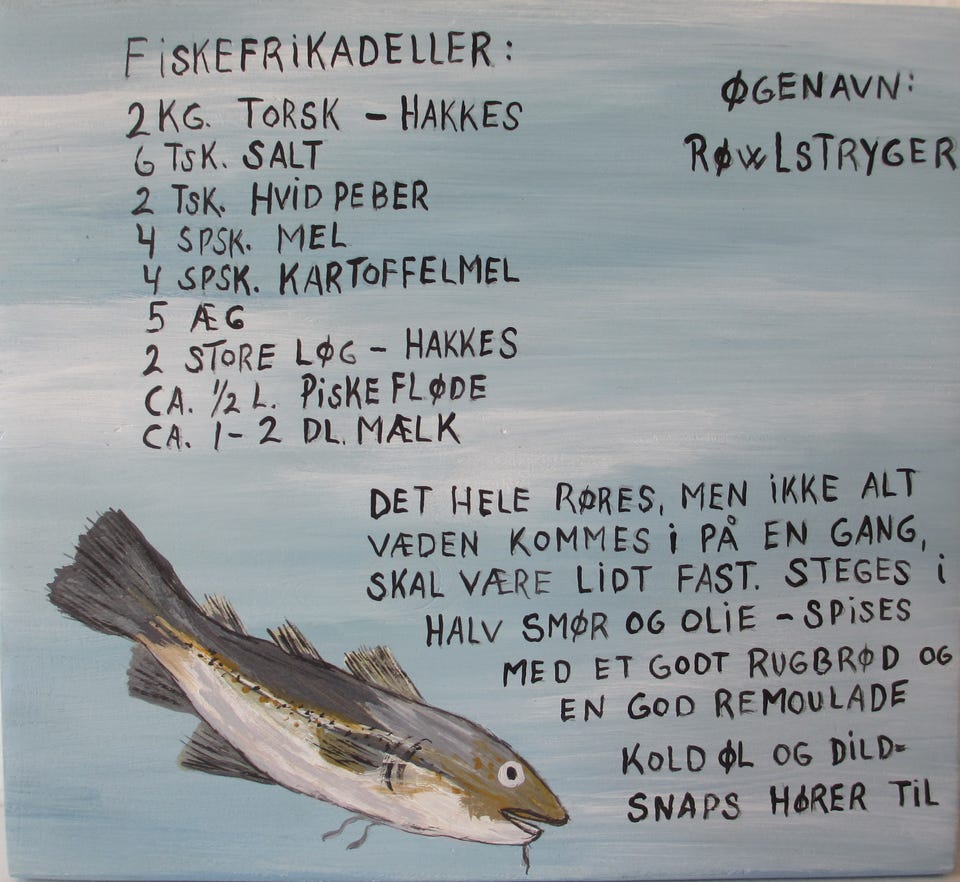 FiSKEFRiKADELLER:
2 KG. TORSK - HAKKES
6 TSK. SALT
2 TSK. HViD PEBER
4 SPSK. MEL
4 SPSK. KARTOFFELMEL
5 ÆG
2 STORE LØG - HAKKES
CA. 1/2 L. PiSKEFLØDE
CA. 1-2 DL. MÆLK
ØGENAVN:
RØWLSTRYGER
DET HELE RØRES, MEN iKKE ALT
VÆDEN KOMMES i PÅ EN GANG,
SKAL VÆRE LiDT FAST. STEGES i
HALV SMØR OG OLiE - SPiSES
MED ET GODT RUGBRØD OG
EN GOD REMOULADE
KOLD ØL OG DiLD=
SNAPS HØRER TiL